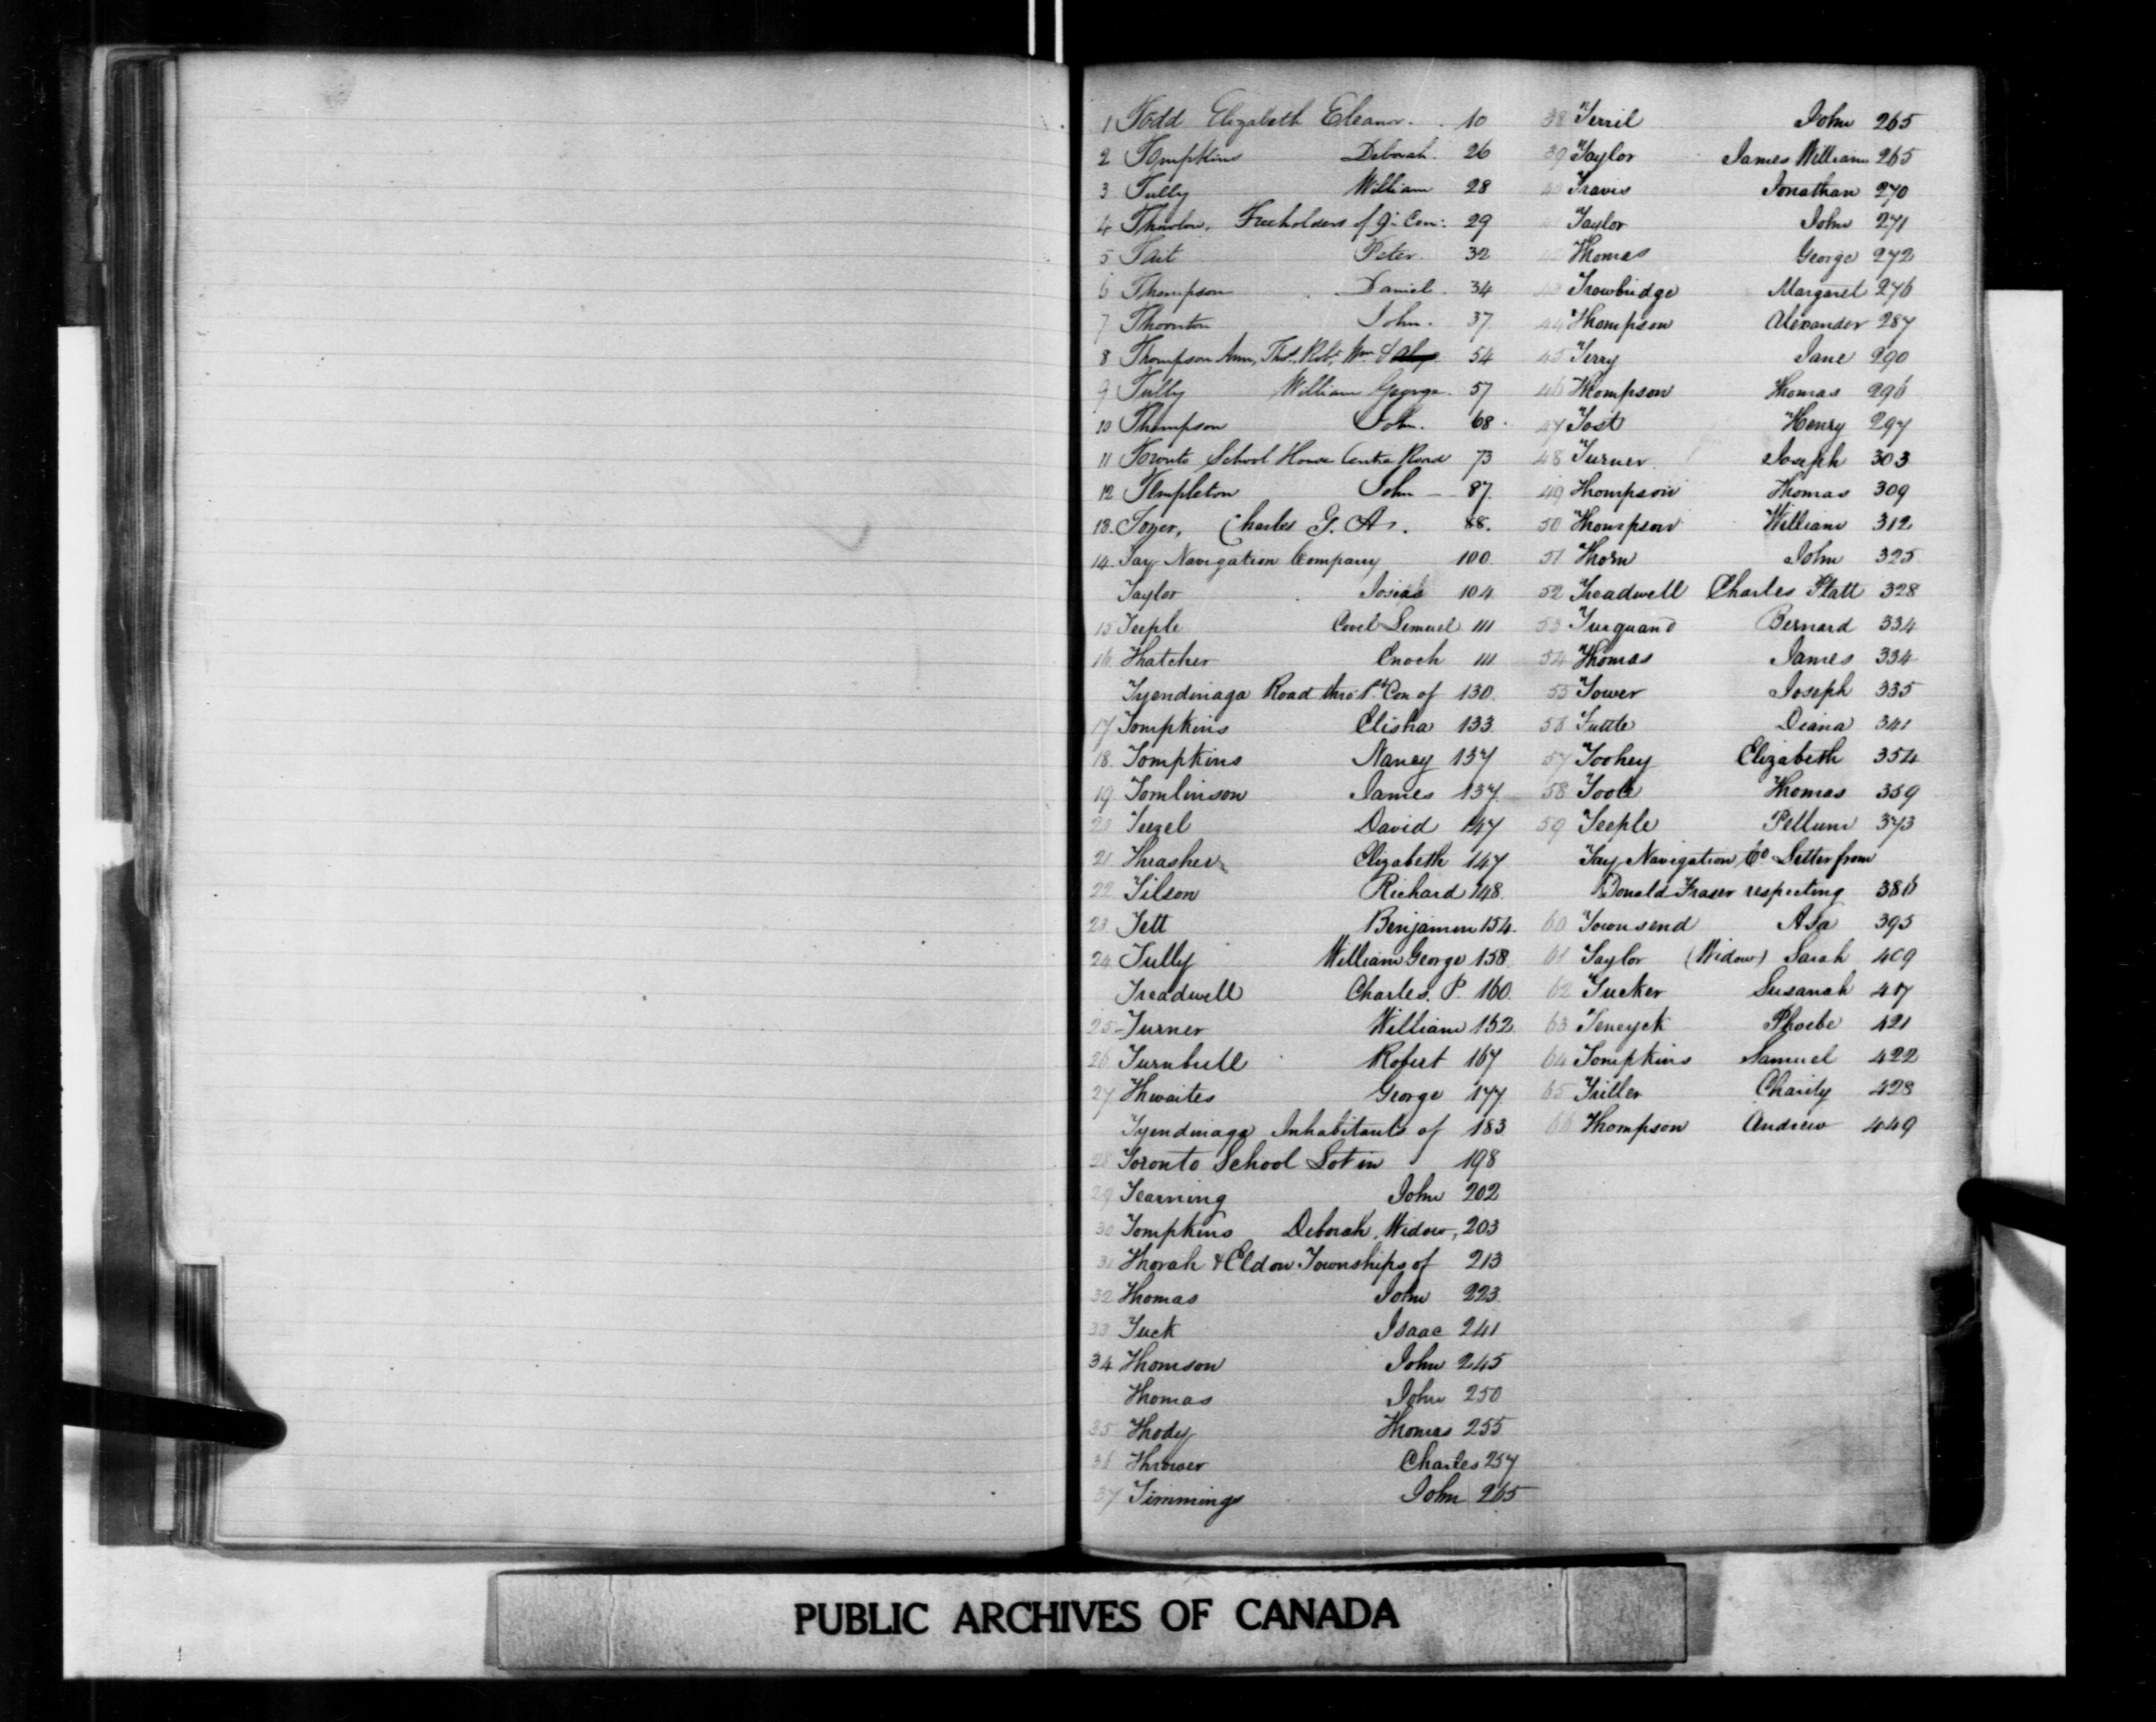 1 Todd Elizabeth Eleanor. 10
2 Tompkins Deborah. 26
3 Tully William 28
4 Thurlow, Freeholders of 9th Con: 29
5 Tait Peter. 32
6 Thompson Daniel. 34
7 Thornton John. 37
8 Thompson Ann, Thos. Robt. Wm & 54
9 Tully William George. 57
10 Thompson John. 68
11 Toronto School House Centre Road 73
12 Templeton John 87
13. Tozer, Charles G. A. 88.
14. Tay Navigation Company 100
Taylor Josias 104
15 Teeple Covel Lemuel 111
16 Thatcher Enoch 111
Tyendinaga Road thro' 1st Con of 130
17 Tompkins Elisha 133
18. Tompkins Nancy 137
19 Tomlinson James 137
20 Teezel David 147
21 Thrasher Elizabeth 147
22 Tilson Richard 148
23 Tett Benjamin 154
24 Tully William George 158
Treadwell Charles. P. 160
25 Turner William 162
26 Turnbull Robert 167
27 Thwaites George 177
Tyendinaga Inhabitants of 183
28 Toronto School Lot in 198
29 Tearning John 202
30 Tompkins Deborah, Widow, 203
31 Thorah & Eldon Townships of 213
32 Thomas John 223
33 Tuck Isaac 241
34 Thomson John 245
Thomas John 250
35 Thody Thomas 255
36 Thrower Charles 257
37 Timmings John 265
38 Terril John 265
39 Taylor James William 265
40 Travis Jonathan 270
41 Taylor John 271
42 Thomas George 272
43 Trowbridge Margaret 276
44 Thompson Alexander 287
45 Terry Jane 290
46 Thompson Thomas 296
47 Tost Henry 297
48 Turner Joseph 303
49 Thompson Thomas 309
50 Thompson William 312
51 Thorn John 325
52 Treadwell Charles Platt 328
53 Turquand Bernard 334
54 Thomas James 334
55 Tower Joseph 335
56 Tuttle Diana 341
57 Toohey Elizabeth 354
58 Toole Thomas 359
59 Teeple Pellum 373
Tay Navigation Co Letter from
Donald Fraser respecting 386
60 Townsend Asa 395
61 Taylor (Widow) Sarah 409
62 Tucker Susanah 417
63 Teneyck Phoebe 421
64 Tompkins Samuel 422
65 Triller Charity 428
66 Thompson Andrew 449
PUBLIC ARCHIVES OF CANADA